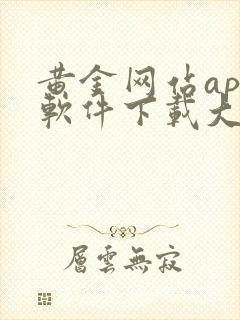 黄金网站ap
軟件下載大
層雲無寂